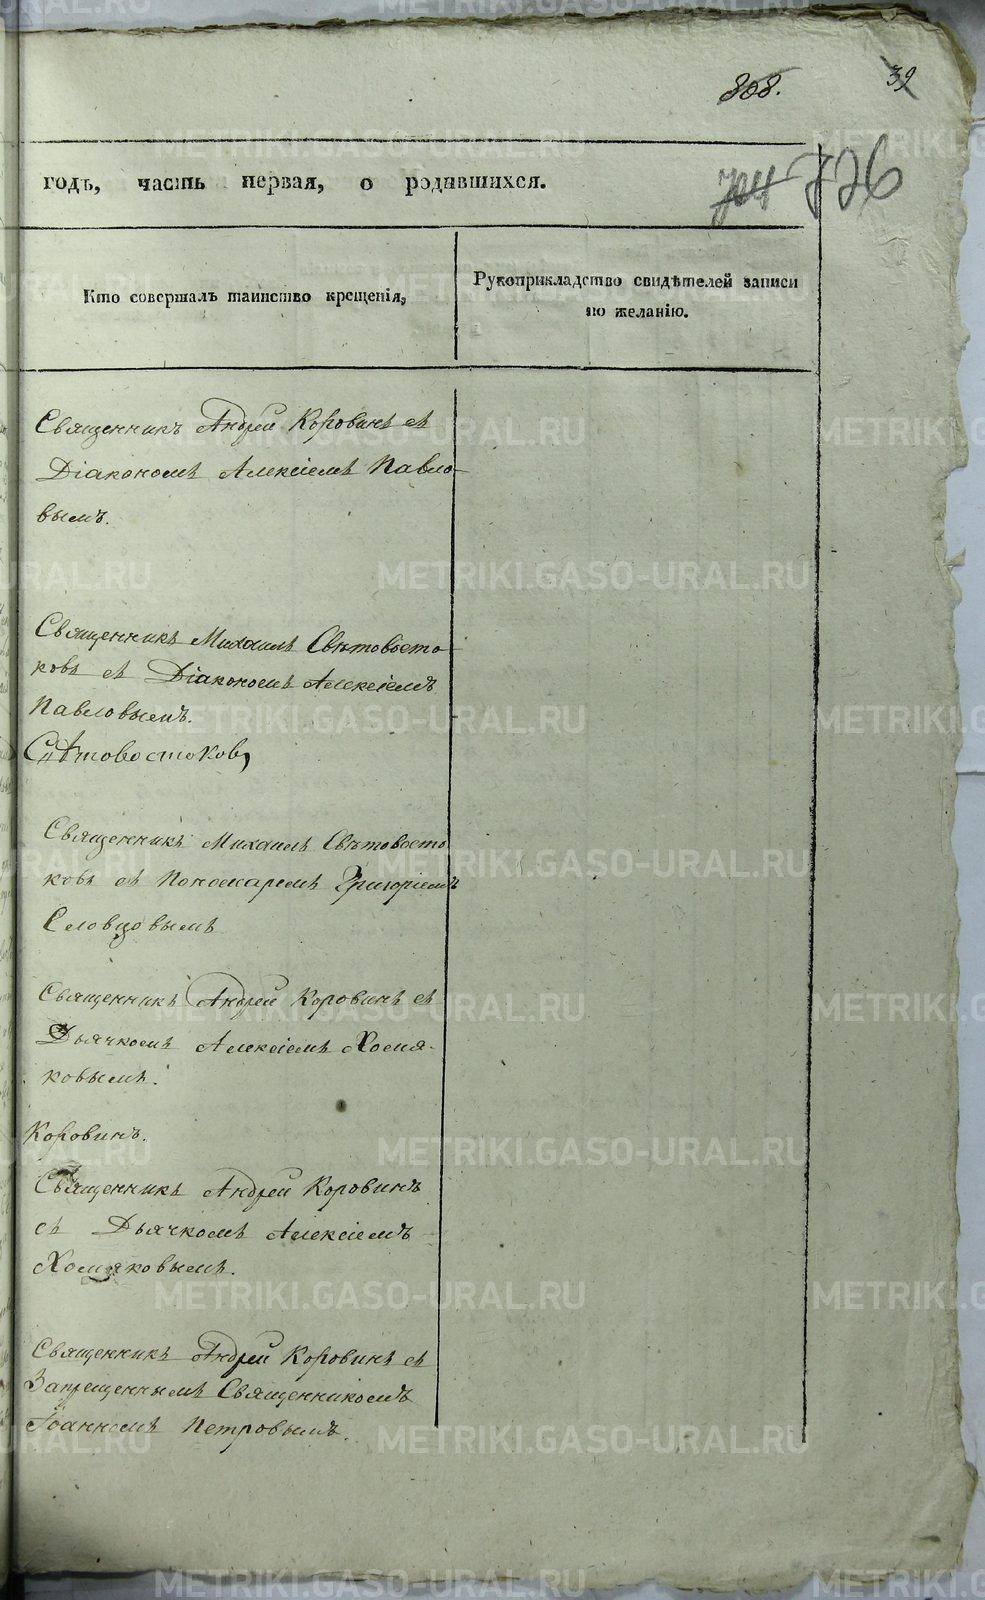 808.
39
годъ, часть первая, о родившихся.
704 726
Кто совершалъ таинство крещенія,
Рукоприкладство свидѣтелей записи
по желанію.
Священникъ Андрей Коровинъ съ
Діакономъ Алексіемъ Павло-
вымъ.
Священникъ Михаилъ Свѣтовосто-
ковъ съ Діакономъ Алексіемъ
Павловымъ.
Свѣтовостоковъ
Священникъ Михаилъ Свѣтовосто
ковъ съ Пономаремъ Григоріемъ
Словцовымъ
Священникъ Андрей Коровинъ съ
Дьячкомъ Алексіемъ Хомя-
ковымъ.
Коровинъ.
Священникъ Андрей Коровинъ
съ Дьячкомъ Алексіемъ
Хомяковымъ.
Священникъ Андрей Коровинъ съ
Запрещеннымъ Священникомъ
Іоанномъ Петровымъ.
METRIKI.GASO-URAL.RU